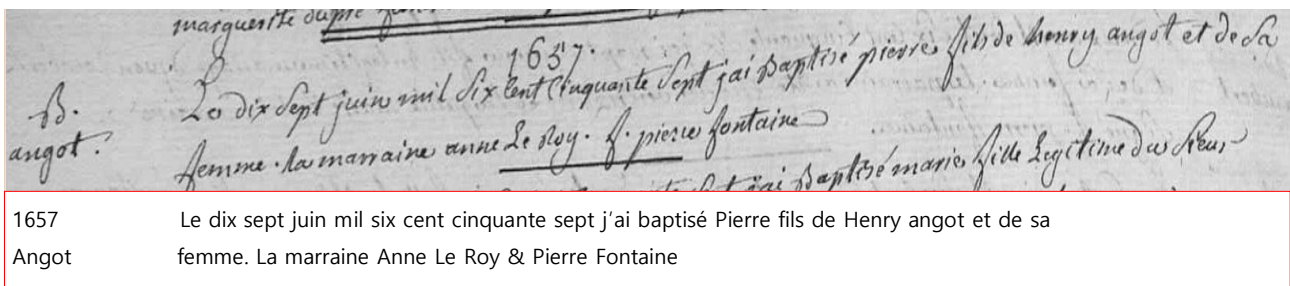 marguerite dupré
1657.
B. Le dix Sept juin mil Six Cent Cinquante Sept j'ai Baptisé pierre fils de henry angot et de Sa
angot. femme. la marraine anne Le Roy. f. pierre fontaine
j'ai Baptisé marie fille Legitime du Sieur
1657 Le dix sept juin mil six cent cinquante sept j'ai baptisé Pierre fils de Henry angot et de sa
Angot femme. La marraine Anne Le Roy & Pierre Fontaine